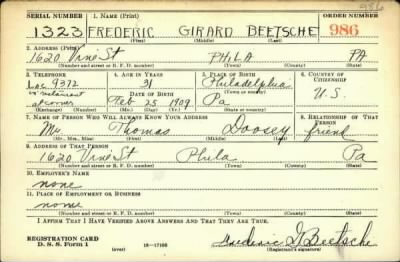 986
SERIAL NUMBER 1. NAME (Print) ORDER NUMBER
1323 FREDERIC GIRARD BEETSCHE 986
(First) (Middle) (Last)
2. ADDRESS (Print)
1620 Vine St PHILA PA
(Number and street or R. F. D. number) (Town) (County) (State)
3. TELEPHONE 4. AGE IN YEARS 5. PLACE OF BIRTH 6. COUNTRY OF CITIZENSHIP
Loc 9372 31 Philadelphia
restaurant DATE OF BIRTH (Town or county) U.S.
at corner Feb 25 1909 Pa
(Exchange) (Number) (Mo.) (Day) (Yr.) (State or country)
7. NAME OF PERSON WHO WILL ALWAYS KNOW YOUR ADDRESS 8. RELATIONSHIP OF THAT PERSON
Mr Thomas Doosey friend
(Mr., Mrs., Miss) (First) (Middle) (Last)
9. ADDRESS OF THAT PERSON
1620 Vine St Phila Pa
(Number and street or R. F. D. number) (Town) (County) (State)
10. EMPLOYER'S NAME
none
11. PLACE OF EMPLOYMENT OR BUSINESS
none
(Number and street or R. F. D. number) (Town) (County) (State)
I AFFIRM THAT I HAVE VERIFIED ABOVE ANSWERS AND THAT THEY ARE TRUE.
REGISTRATION CARD
D. S. S. Form 1 (over) 16-17105 Frederic G Beetsche
(Registrant's signature)